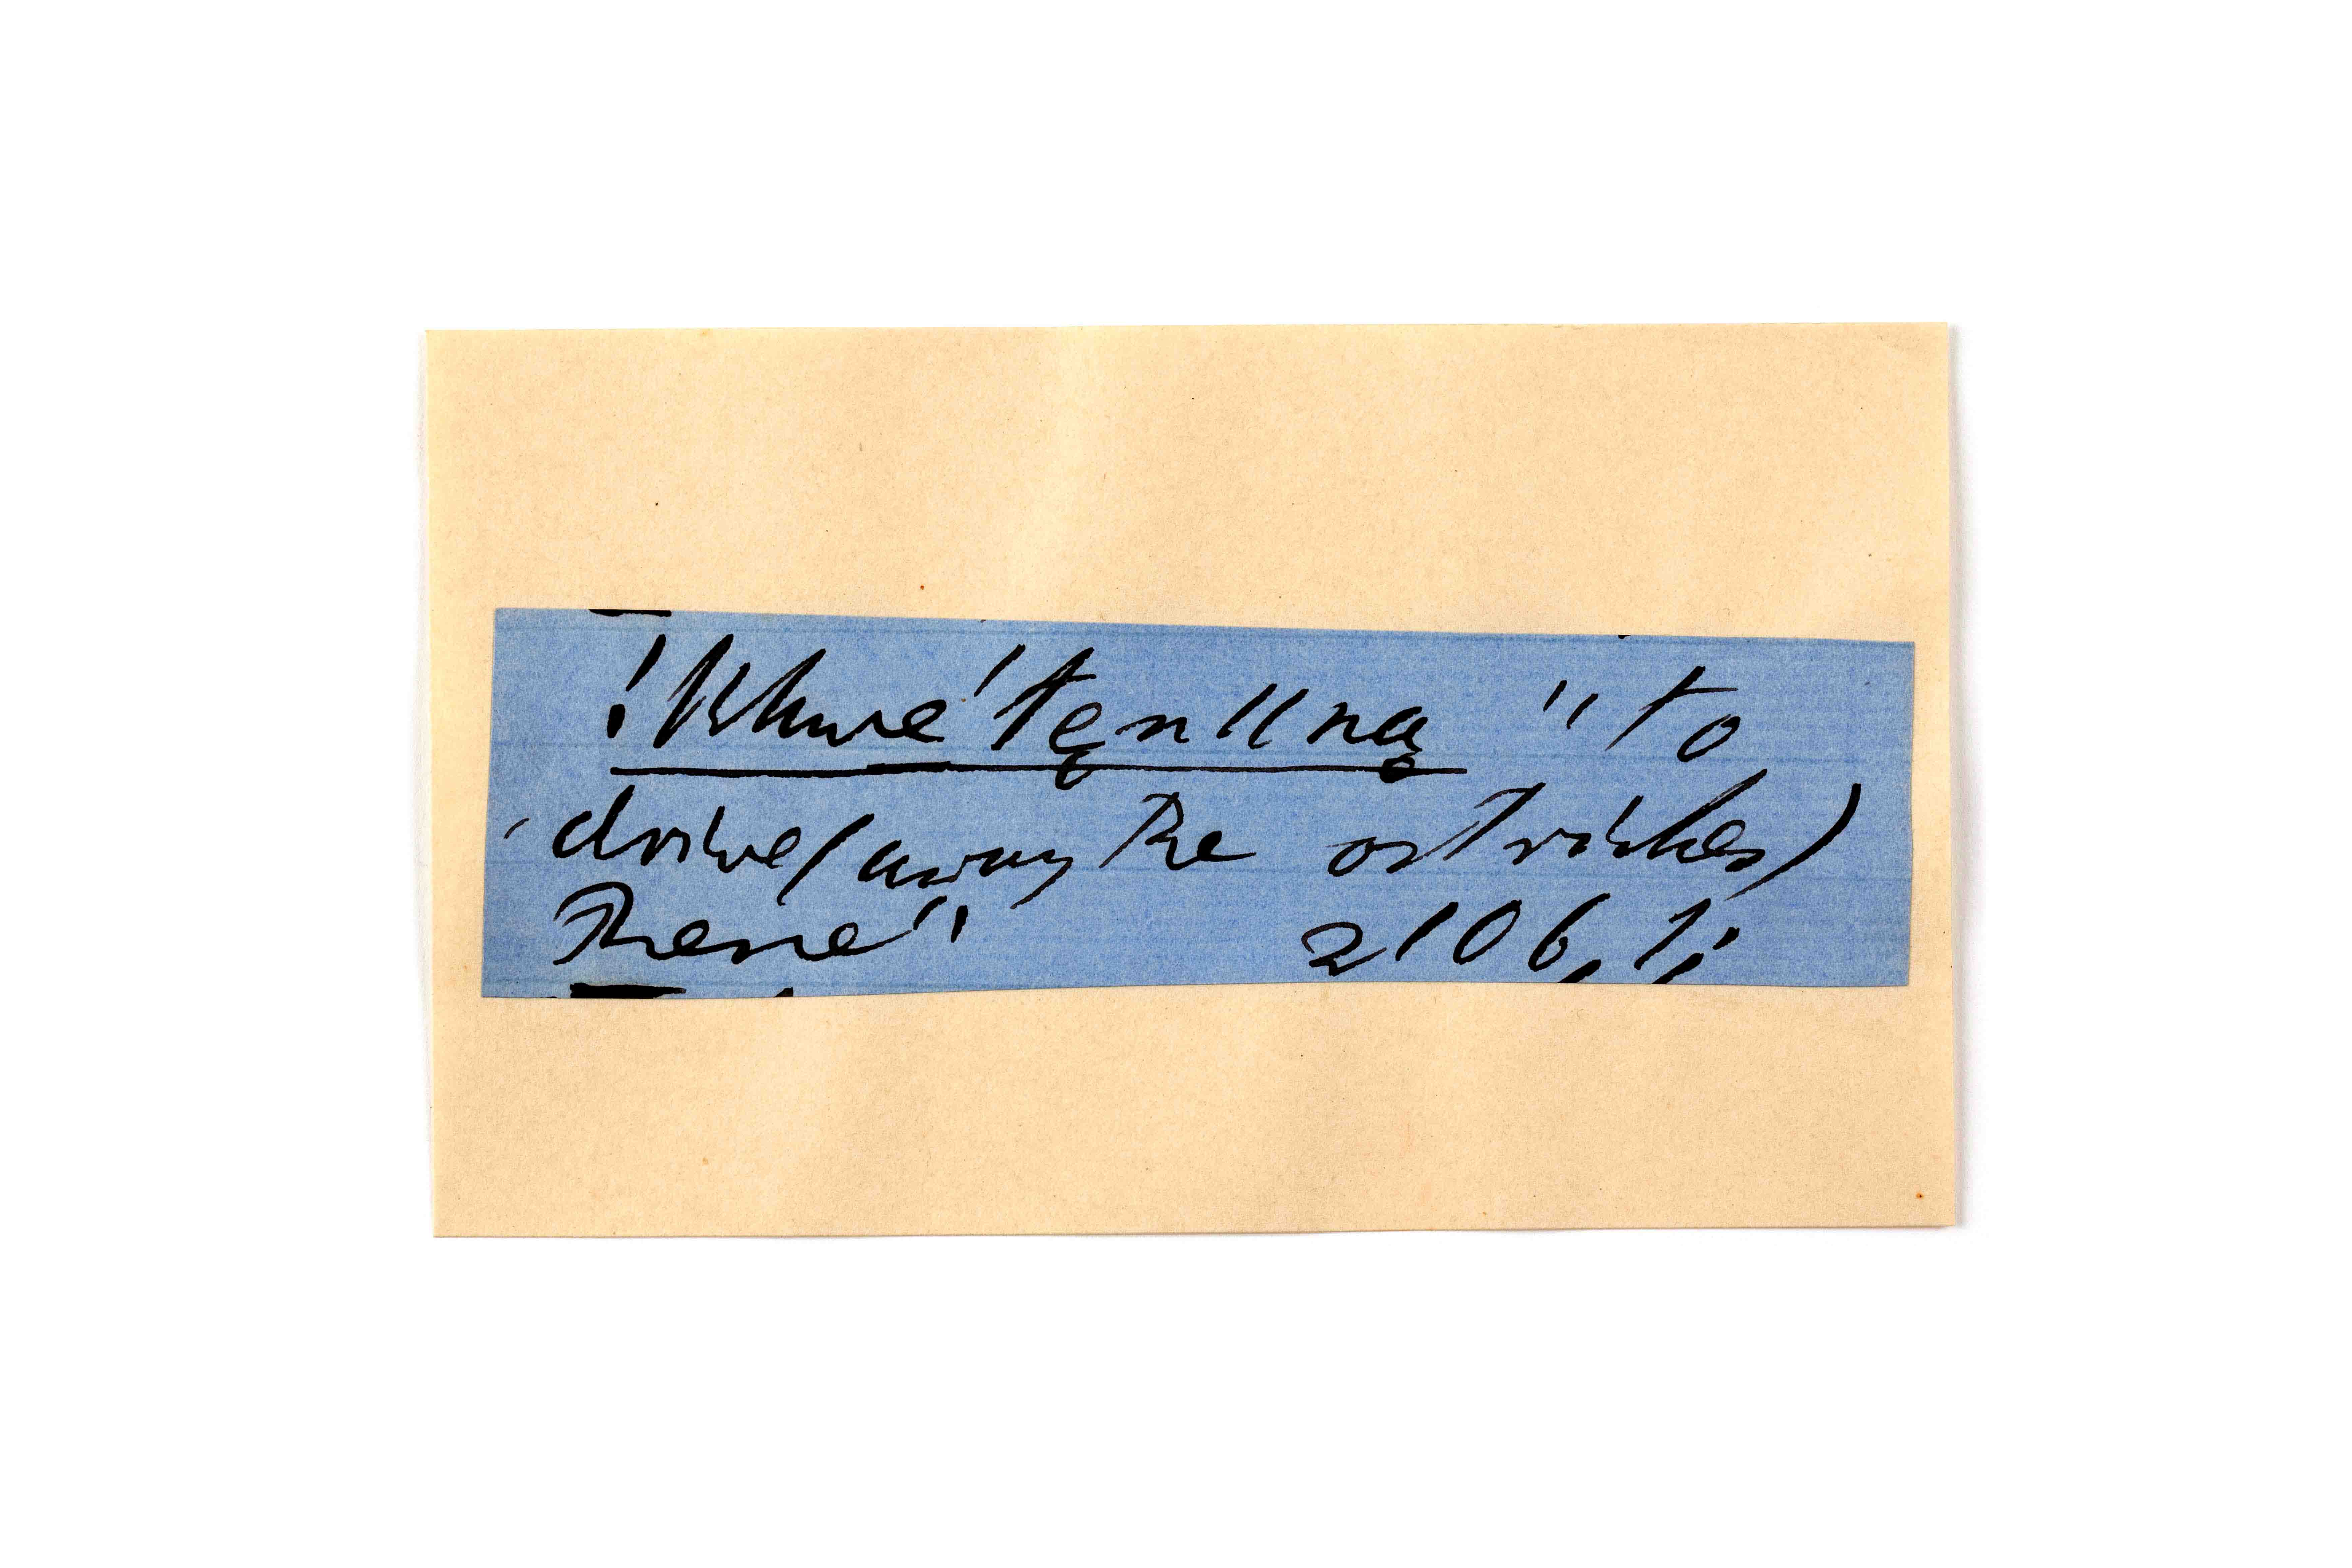 !khwe 'tęn ǁna̭ " to
drive (away the ostriches)
there" 2106, 1;